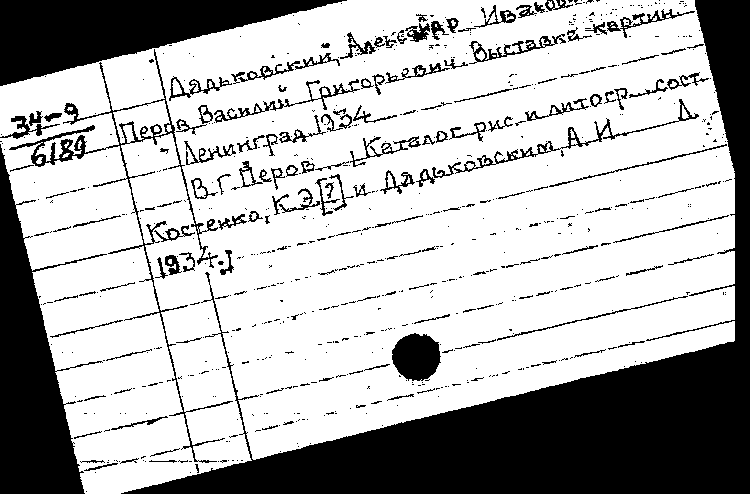 34-9
6189
Дядьковский, Александр
Перов, Василий Григорьевич. Выставка картин.
Ленинград. 1934
В. Г. Перов... [Каталог рис. и литогр... сост.
Костенко, К. Э. [?] и Дядьковским, А. И. Л.
1934.]